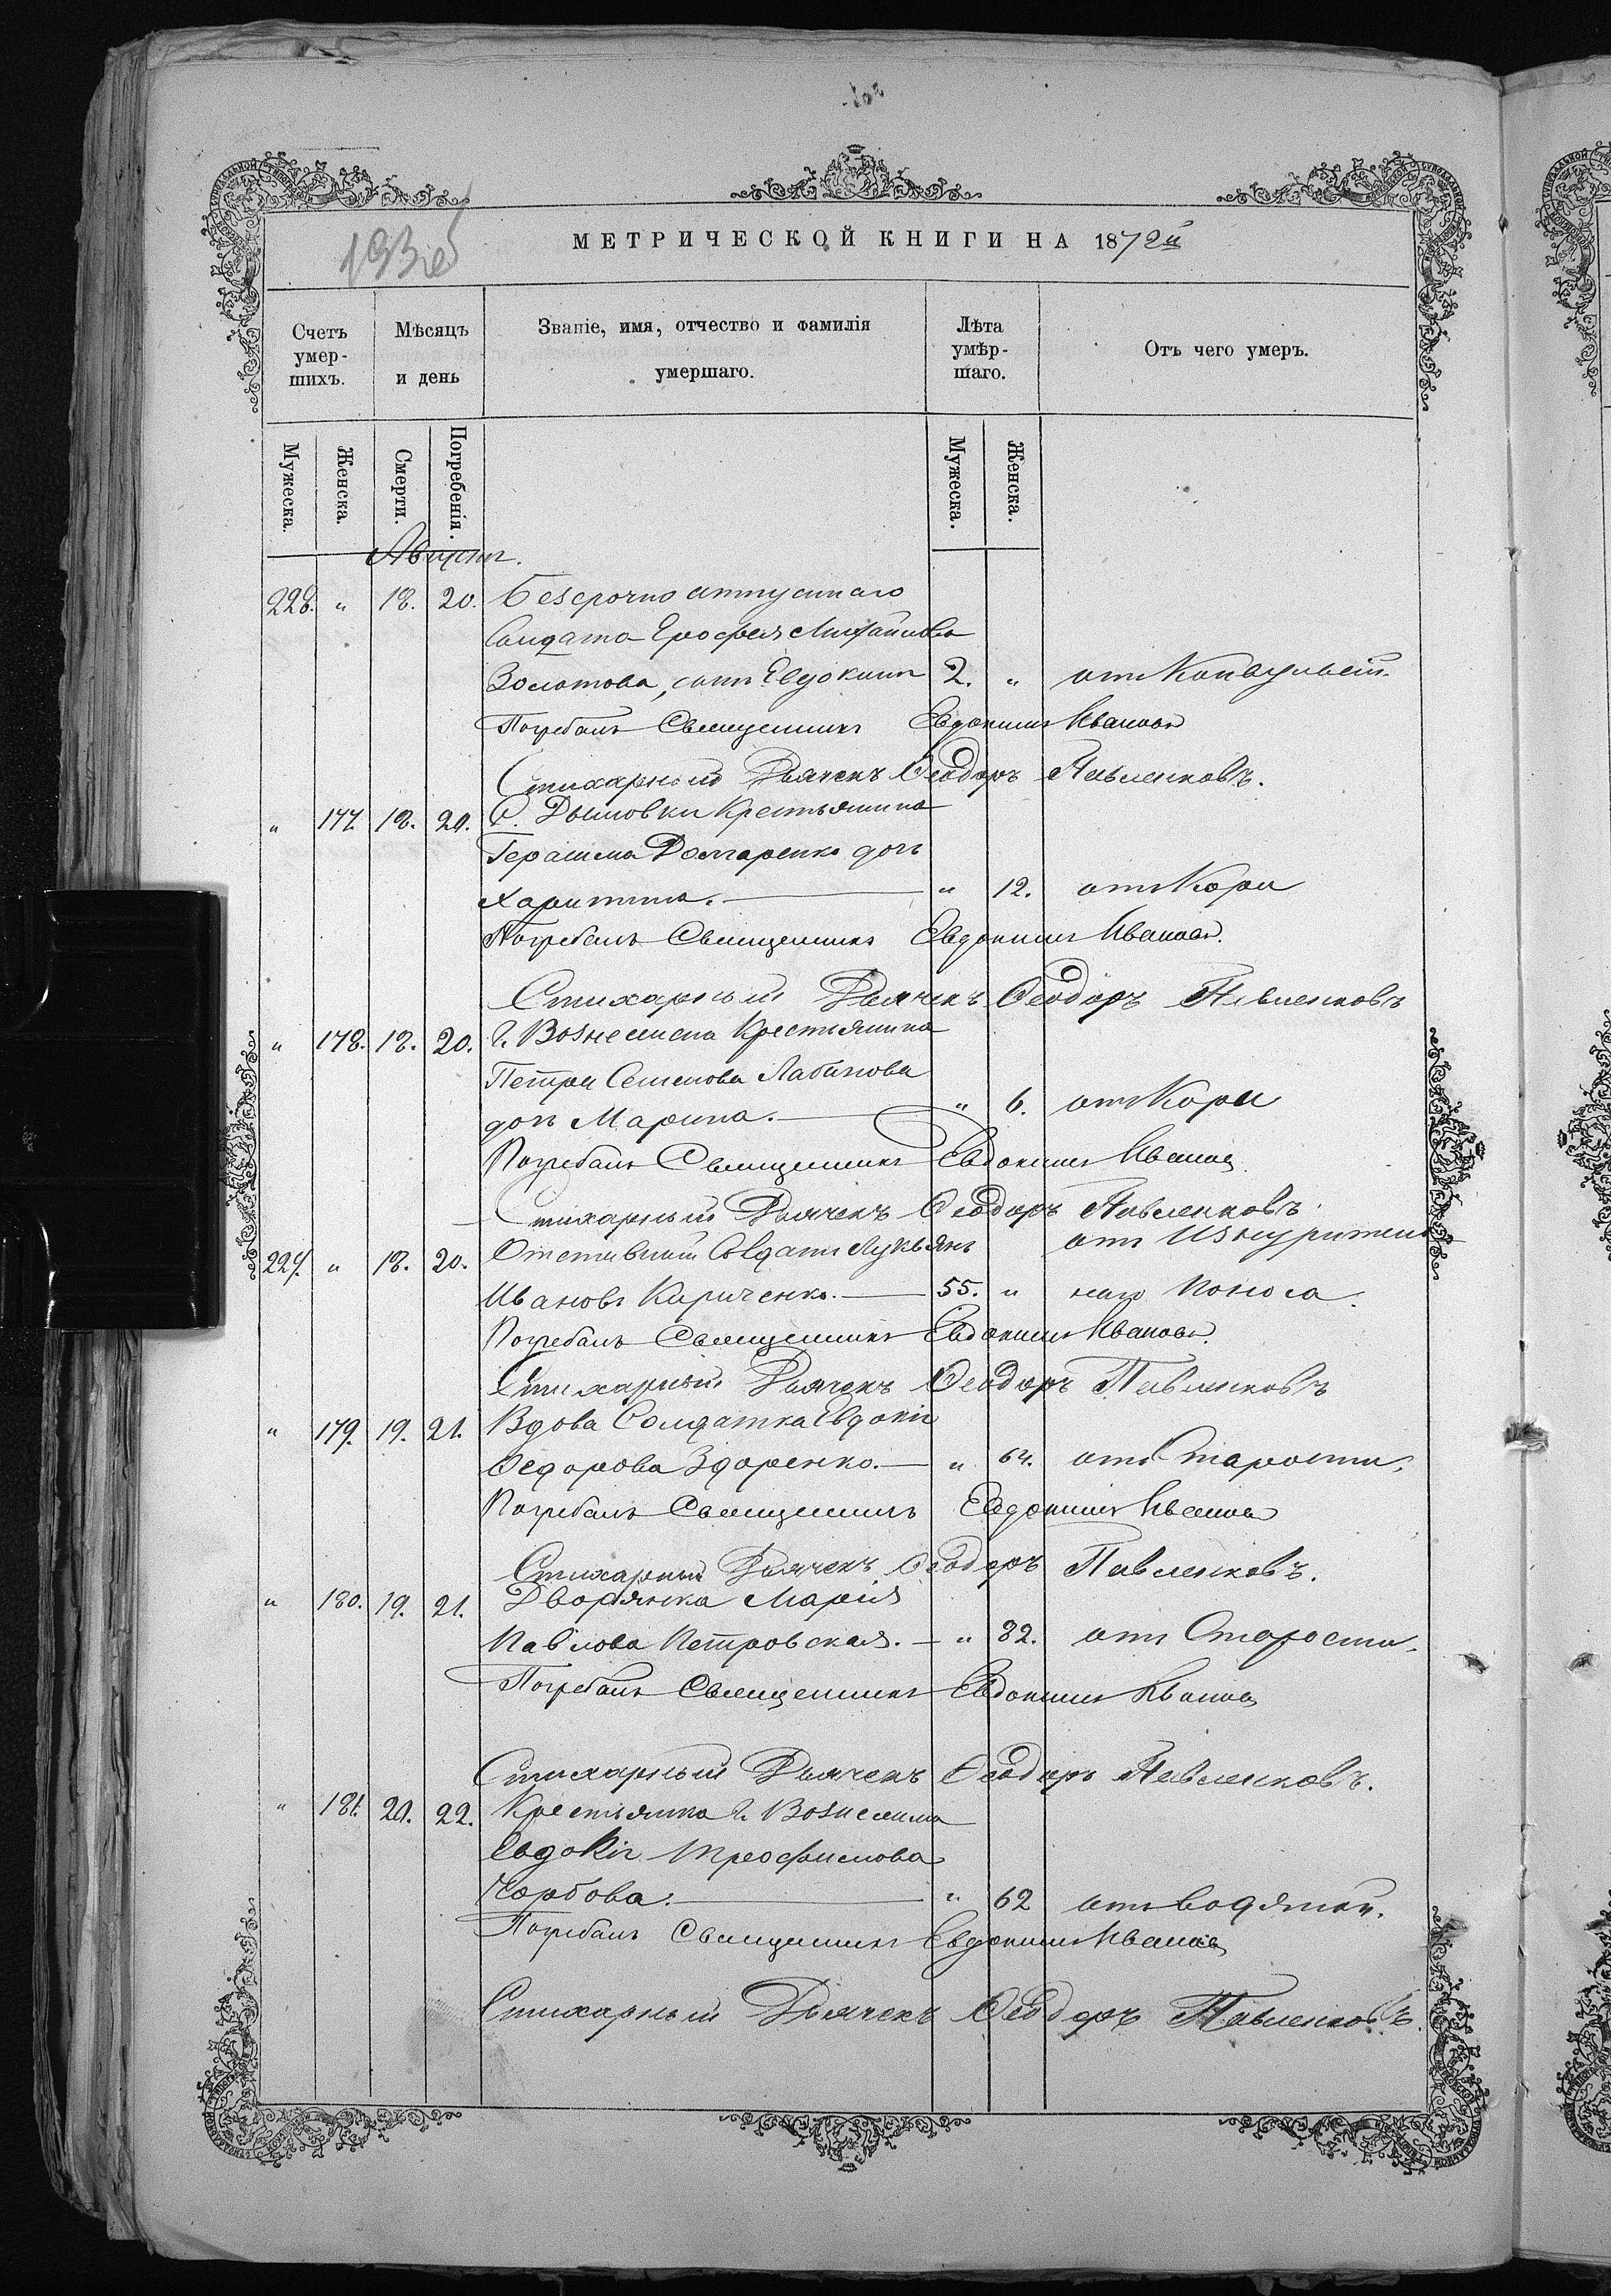 193 об
МЕТРИЧЕСКОЙ КНИГИ НА 1872й
Счетъ умер-шихъ.
Мѣсяцъ и день
Званіе, имя, отчество и фамилія умершаго.
Лѣта умѣр-шаго.
Отъ чего умеръ.
Мужеска.
Женска.
Смерти.
Погребенія.
Мужеска.
Женска.
Августъ.
228. " 18. 20. Безсрочно отпустнаго
Солдата Ерофея
Золотова, сынъ Евдокимъ 2. " отъ Конвульсій.
Погребалъ Священникъ Евдокимъ Ивановъ
Стихарный Дьячекъ Ѳеодоръ Павленковъ.
" 177. 18. 20. С. Дымовки Крестьянина
Герасима дочь
Харитина. " 12. отъ Кори
Погребалъ Священникъ Евдокимъ Ивановъ.
Стихарный Дьячекъ Ѳеодоръ Павленковъ
" 178. 18. 20. г. Вознесенска Крестьянина
Петра Семенова Лабинова
дочь Марина. " 6. отъ Кори
Погребалъ Священникъ Евдокимъ Ивановъ
Стихарный Дьячекъ Ѳеодоръ Павленковъ.
229. " 18. 20. Отставный Солдатъ Лукьянъ отъ Изнуритель
Ивановъ Кириченко. 55. " наго Поноса.
Погребалъ Священникъ Евдокимъ Ивановъ.
Стихарный Дьячекъ Ѳеодоръ Павленковъ
" 179. 19. 21. Вдова Солдатка Евдокія
Ѳедорова Здоренко. " 64. отъ Старости.
Погребалъ Священникъ Евдокимъ Ивановъ
Стихарный Дьячекъ Ѳеодоръ Павленковъ.
" 180. 19. 21. Дворянка Марія
Павлова Петровская. " 82. отъ Старости.
Погребалъ Священникъ Евдокимъ Ивановъ
Стихарный Дьячекъ Ѳеодоръ Павленковъ.
" 181. 20. 22. Крестьянка г. Вознесенска
Евдокія Трофимова
Чорбова. " 62 отъ водяной.
Погребалъ Священникъ Евдокимъ Ивановъ
Стихарный Дьячекъ Ѳеодоръ Павленковъ